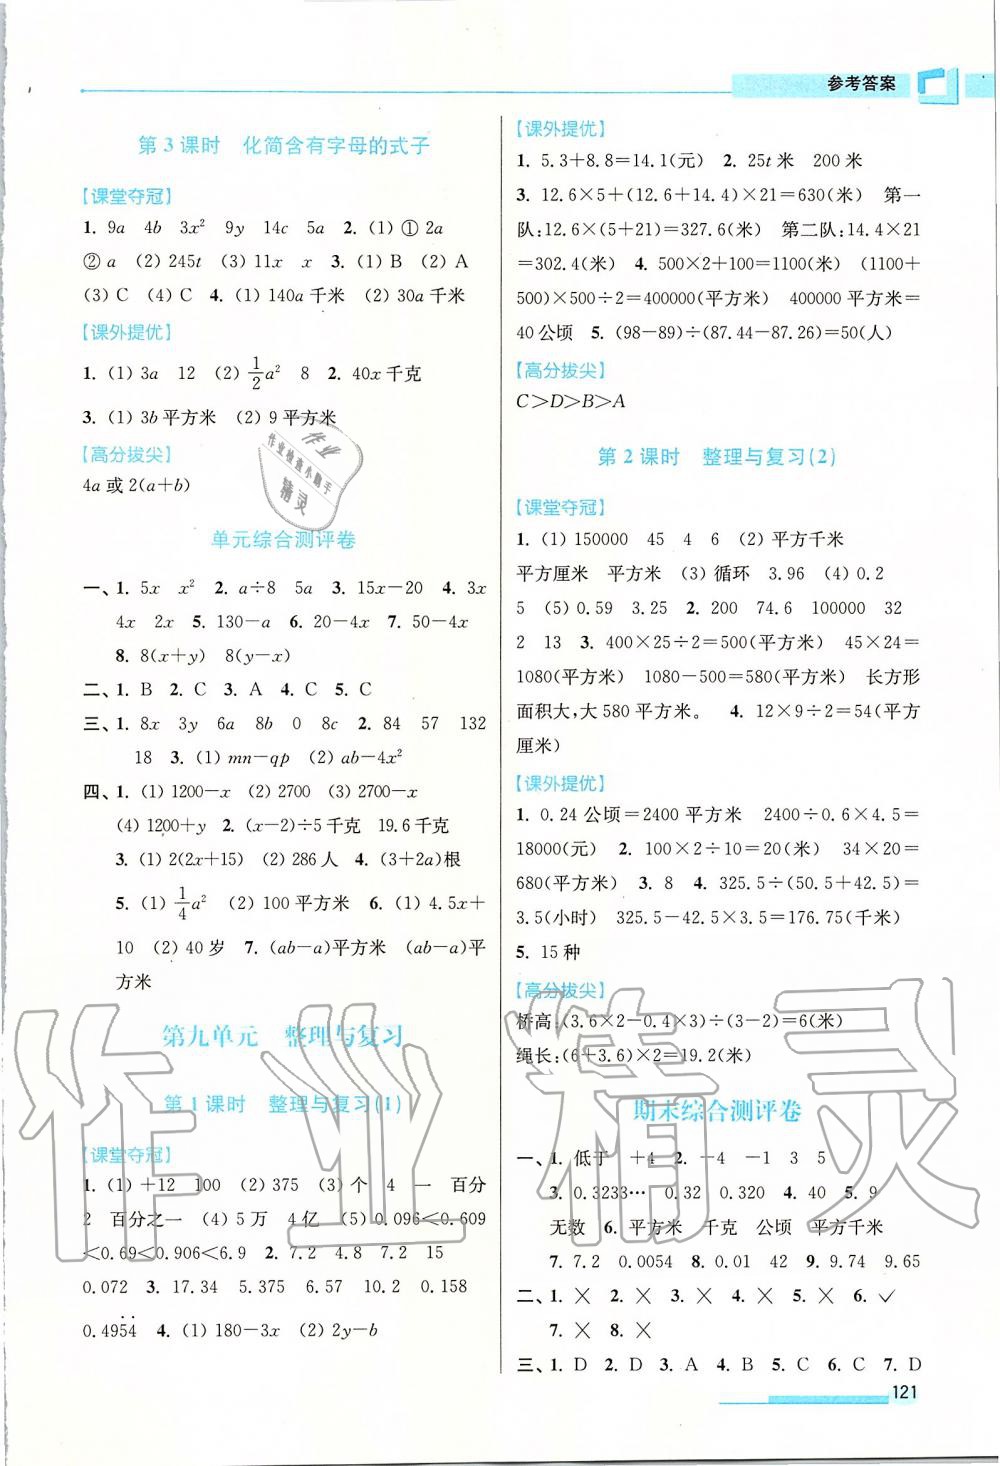 参考答案
第 3 课时　化简含有字母的式子
【课堂夺冠】
1. 9a　4b　3x²　9y　14c　5a　2. (1) ① 2a
② a　(2) 245t　(3) 11x　x　3. (1) B　(2) A
(3) C　(4) C　4. (1) 140a 千米　(2) 30a 千米
【课外提优】
1. (1) 3a　12　(2) 1/2 a²　8　2. 40x 千克
3. (1) 3b 平方米　(2) 9 平方米
【高分拔尖】
4a 或 2(a+b)
单元综合测评卷
一、1. 5x　x²　2. a÷8　5a　3. 15x−20　4. 3x
4x　2x　5. 130−a　6. 20−4x　7. 50−4x
8. 8(x+y)　8(y−x)
二、1. B　2. C　3. A　4. C　5. C
三、1. 8x　3y　6a　8b　0　8c　2. 84　57　132
18　3. (1) mn−qp　(2) ab−4x²
四、1. (1) 1200−x　(2) 2700　(3) 2700−x
(4) 1200+y　2. (x−2)÷5 千克　19.6 千克
3. (1) 2(2x+15)　(2) 286 人　4. (3+2a)根
5. (1) 1/4 a²　(2) 100 平方米　6. (1) 4.5x+
10　(2) 40 岁　7. (ab−a)平方米　(ab−a)平
方米
第九单元　整理与复习
第 1 课时　整理与复习(1)
【课堂夺冠】
1. (1) +12　100　(2) 375　(3) 个　4　一　百分
2　百分之一　(4) 5 万　4 亿　(5) 0.096<0.609
<0.69<0.906<6.9　2. 7.2　4.8　7.2　15
0.072　3. 17.34　5.375　6.57　10.2　0.158
0.495̇4̇　4. (1) 180−3x　(2) 2y−b
【课外提优】
1. 5.3+8.8=14.1(元)　2. 25t 米　200 米
3. 12.6×5+(12.6+14.4)×21=630(米)　第一
队:12.6×(5+21)=327.6(米)　第二队:14.4×21
=302.4(米)　4. 500×2+100=1100(米)　(1100+
500)×500÷2=400000(平方米)　400000 平方米=
40 公顷　5. (98−89)÷(87.44−87.26)=50(人)
【高分拔尖】
C>D>B>A
第 2 课时　整理与复习(2)
【课堂夺冠】
1. (1) 150000　45　4　6　(2) 平方千米
平方厘米　平方米　(3) 循环　3.96　(4) 0.2
5　(5) 0.59　3.25　2. 200　74.6　100000　32
2　13　3. 400×25÷2=500(平方米)　45×24=
1080(平方米)　1080−500=580(平方米)　长方形
面积大,大 580 平方米。　4. 12×9÷2=54(平方
厘米)
【课外提优】
1. 0.24 公顷=2400 平方米　2400÷0.6×4.5=
18000(元)　2. 100×2÷10=20(米)　34×20=
680(平方米)　3. 8　4. 325.5÷(50.5+42.5)=
3.5(小时)　325.5−42.5×3.5=176.75(千米)
5. 15 种
【高分拔尖】
桥高:(3.6×2−0.4×3)÷(3−2)=6(米)
绳长:(6+3.6)×2=19.2(米)
期末综合测评卷
一、1. 低于　+4　2. −4　−1　3　5
3. 0.3233…　0.32　0.320　4. 40　5. 9
无数　6. 平方米　千克　公顷　平方千米
7. 7.2　0.0054　8. 0.01　42　9. 9.74　9.65
二、1. ×　2. ×　3. ×　4. ×　5. ×　6. ✓
7. ×　8. ×
三、1. D　2. D　3. A　4. B　5. C　6. C　7. D
121
作业
作业检查小助手
精灵
作业精灵